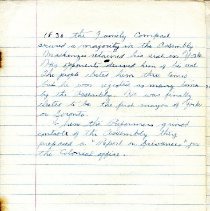 1830 the Family Compact
secured a majority in the Assembly
Mackenzie retained his seat in York
His opponents deprived him of his seat
The people elected him three times
but he was expelled as many times
by the Assembly. He was finally
elected to be the first mayor of York
or Toronto.
When the Reformers gained
control of the Assembly they
prepared a "Report on Grievances" for
the Colonial office.